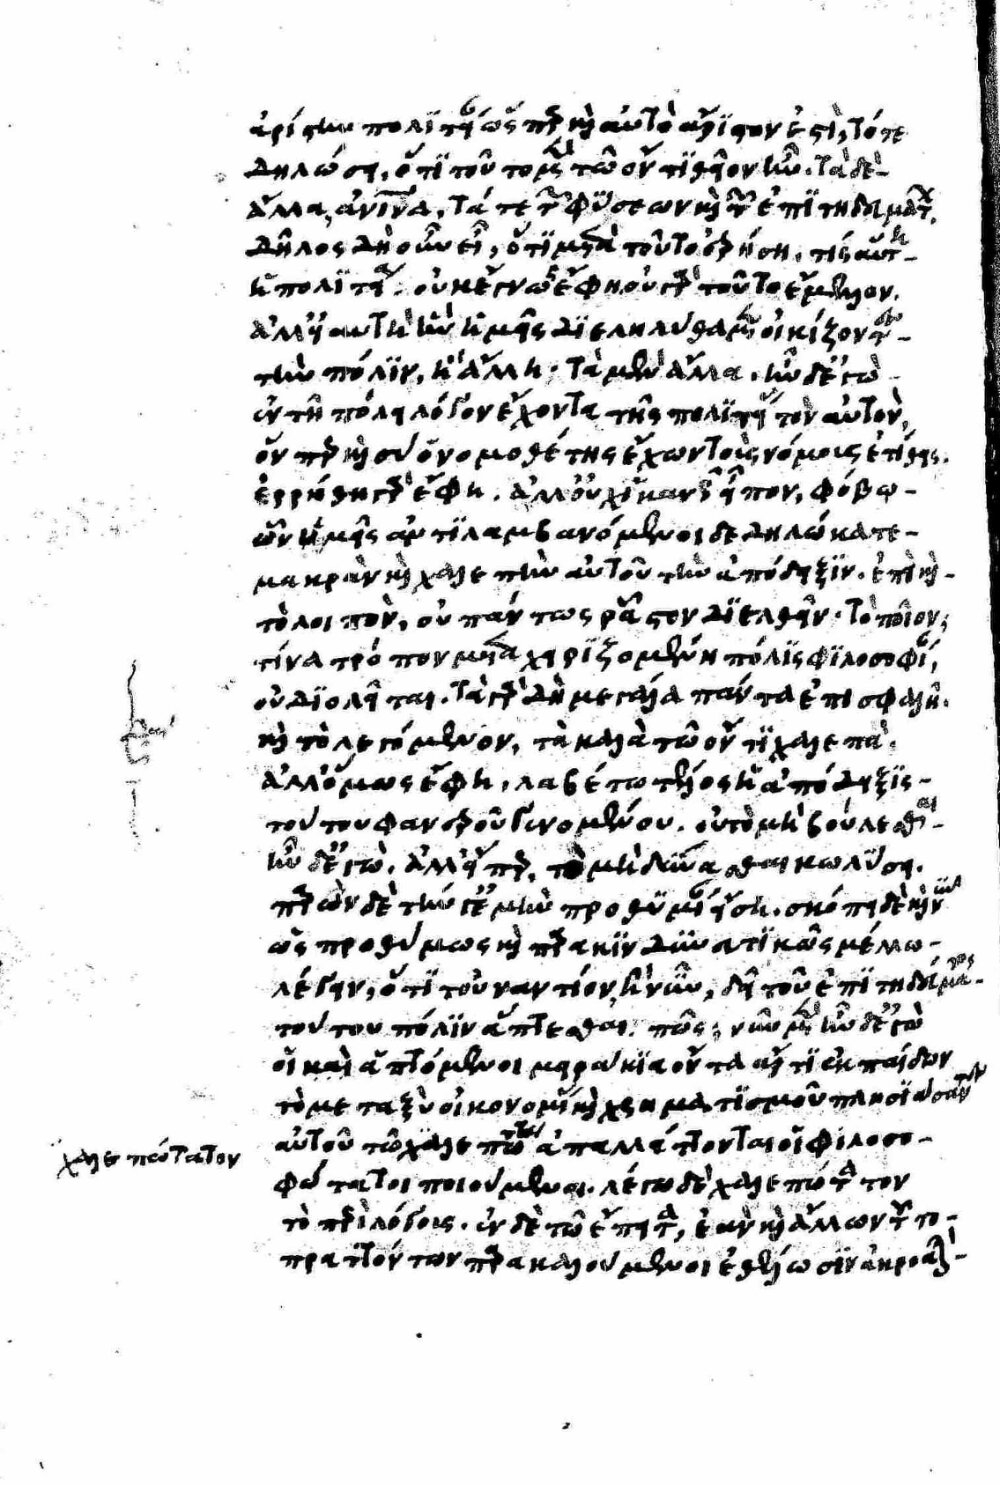 ἀρίστην πολιτείαν ὥσπερ καὶ αὐτὸ ἄριστον ἐστὶ, τότε
δηλώσει, ὅτι τοῦτο μὲν τῶ ὄντι θεῖον ἦν. τὰ δὲ
ἄλλα, ἀνθρώπινα, τά τε τῶν φύσεων καὶ τῶν ἐπιτηδευμάτων.
δῆλος δὴ οὖν εἶ, ὅτι μετὰ τοῦτο ἐρήσῃ, τίς αὕτη
ἡ πολιτεία. οὐκ ἔγνως ἔφη οὐ γὰρ τοῦτο ἔμελλον.
ἀλλ' εἰ αὐτὴ ἣν ἡμεῖς διεληλύθαμεν οἰκίζοντες
τὴν πόλιν, ἢ ἄλλη. τὰ μὲν ἄλλα, ἦν δ' ἐγὼ
ἐν τῇ πόλει λόγον ἔχοντα τῆς πολιτείας τὸν αὐτὸν,
ὅνπερ καὶ σὺ ὁ νομοθέτης ἔχων τοὺς νόμους ἐτίθεις.
ἐρρήθη γὰρ ἔφη. ἀλλ' οὐχ ἱκανῶς εἶπον, φόβω
ὧν ὑμεῖς ἀντιλαμβανόμενοι δεδηλώκατε
μακρὰν καὶ χαλεπὴν αὐτοῦ τὴν ἀπόδειξιν. ἐπεὶ καὶ
τὸ λοιπὸν, οὐ πάντως ῥᾶστον διελθεῖν. τὸ ποῖον;
τίνα τρόπον μεταχειριζομένη πόλις φιλοσοφίαν,
οὐ διολεῖται. τὰ γὰρ δὴ μεγάλα πάντα ἐπισφαλῆ.
καὶ τὸ λεγόμενον, τὰ καλὰ τῶ ὄντι χαλεπὰ.
ἀλλ' ὅμως ἔφη, λαβέτω τέλος ἡ ἀπόδειξις
τούτου φανεροῦ γενομένου. οὐ τὸ μὴ βούλεσθαι
ἦν δ' ἐγὼ. ἀλλ' εἴπερ, τὸ μὴ δύνασθαι κωλύσει.
παρὼν δὲ τήν γ' ἐμὴν προθυμίαν εἴσῃ. σκόπει δὲ καὶ νῦν
ὡς προθύμως καὶ παρακινδυνευτικῶς μέλλω
λέγειν, ὅτι τοὐναντίον ἢ νῦν, δεῖ τοῦ ἐπιτηδεύματος
τούτου πόλιν ἅπτεσθαι. πῶς; νῦν μὲν ἦν δ' ἐγὼ
οἱ καὶ ἁπτόμενοι μειράκια ὄντα ἄρτι ἐκ παίδων
τὸ μεταξὺ οἰκονομίας καὶ χρηματισμοῦ πλησιάσαντες
αὐτοῦ τῶ χαλεπωτάτω ἀπαλλάττονται οἱ φιλοσο-
φώτατοι ποιούμενοι. λέγω δὲ χαλεπώτατον
χαλεπώτατον
τὸ περὶ λόγους. ἐν δὲ τῶ ἔπειτα, ἐὰν καὶ ἄλλων τοῦτο
πραττόντων παρακαλούμενοι ἐθέλωσιν ἀκροαταὶ